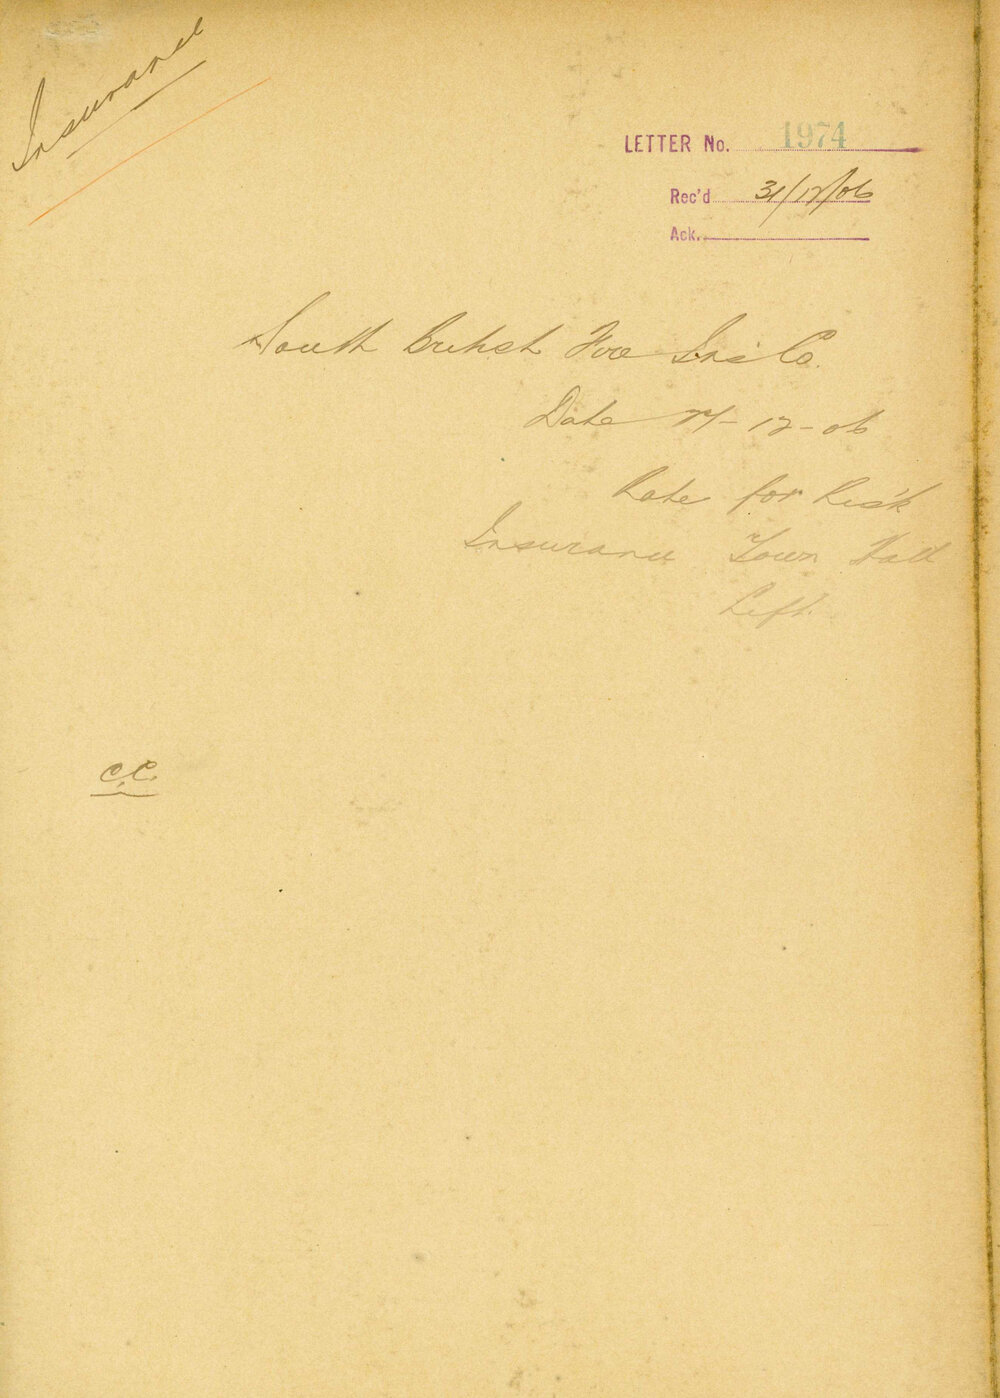 Insurance
LETTER No. 1974
Rec'd 31/12/06
Ack.
South British Fire Ins Co.
Date 27-12-06
Rate for Risk
Insurance Town Hall
Lift.
C.C.